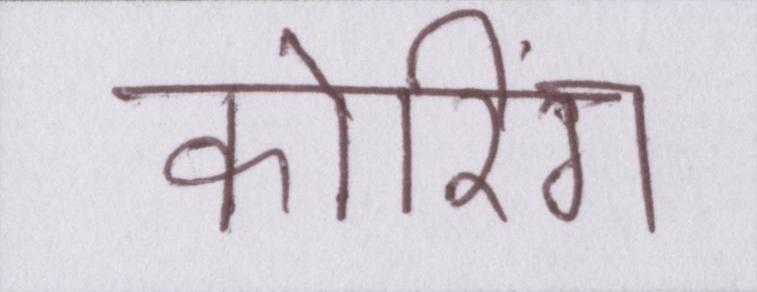 कोरिंग